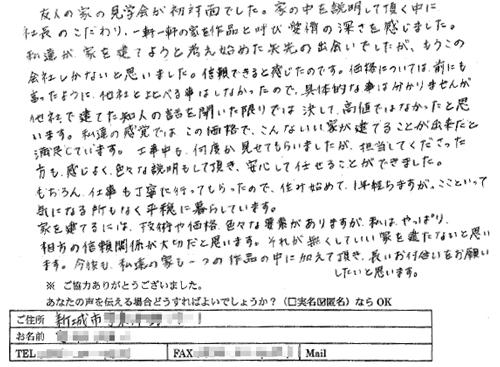 友人の家の見学会が初対面でした。家の中を説明して頂く中に
社長のこだわり、一軒一軒の家を作品と呼び愛情の深さを感じました。
私達が、家を建てようと考え始めた矢先の出会いでしたが、もうこの
会社しかないと思いました。信頼できると感じたのです。価格については、前にも
言ったように、他社と比べる事はしなかったので、具体的な事は分かりませんが
他社で建てた知人の話を聞いた限りでは決して、高値ではなかったと思
います。私達の感覚では この価格で、こんないい家が建てることが出来たと
満足しています。工事中も、何度か見せてもらいましたが、担当してくださった
方も、感じよく、色々な説明もして頂き、安心して任せることができました。
もちろん、仕事も丁寧に行ってもらったので、住み始めて、1年経ちますが、ここといって
気になる所もなく平穏に暮らしています。
家を建てるには、技術や価格、色々な要素がありますが、私は、やっぱり、
相方の信頼関係が大切だと思います。それが無くしていい家を建たないと思い
ます。今後も、私達の家も一つの作品の中に加えて頂き、長いお付合いをお願い
したいと思います。
※ ご協力ありがとうございました。
あなたの声を伝える場合どうすればよいでしょうか?(□実名☑匿名)ならOK
ご住所 新城市
お名前
TEL FAX Mail